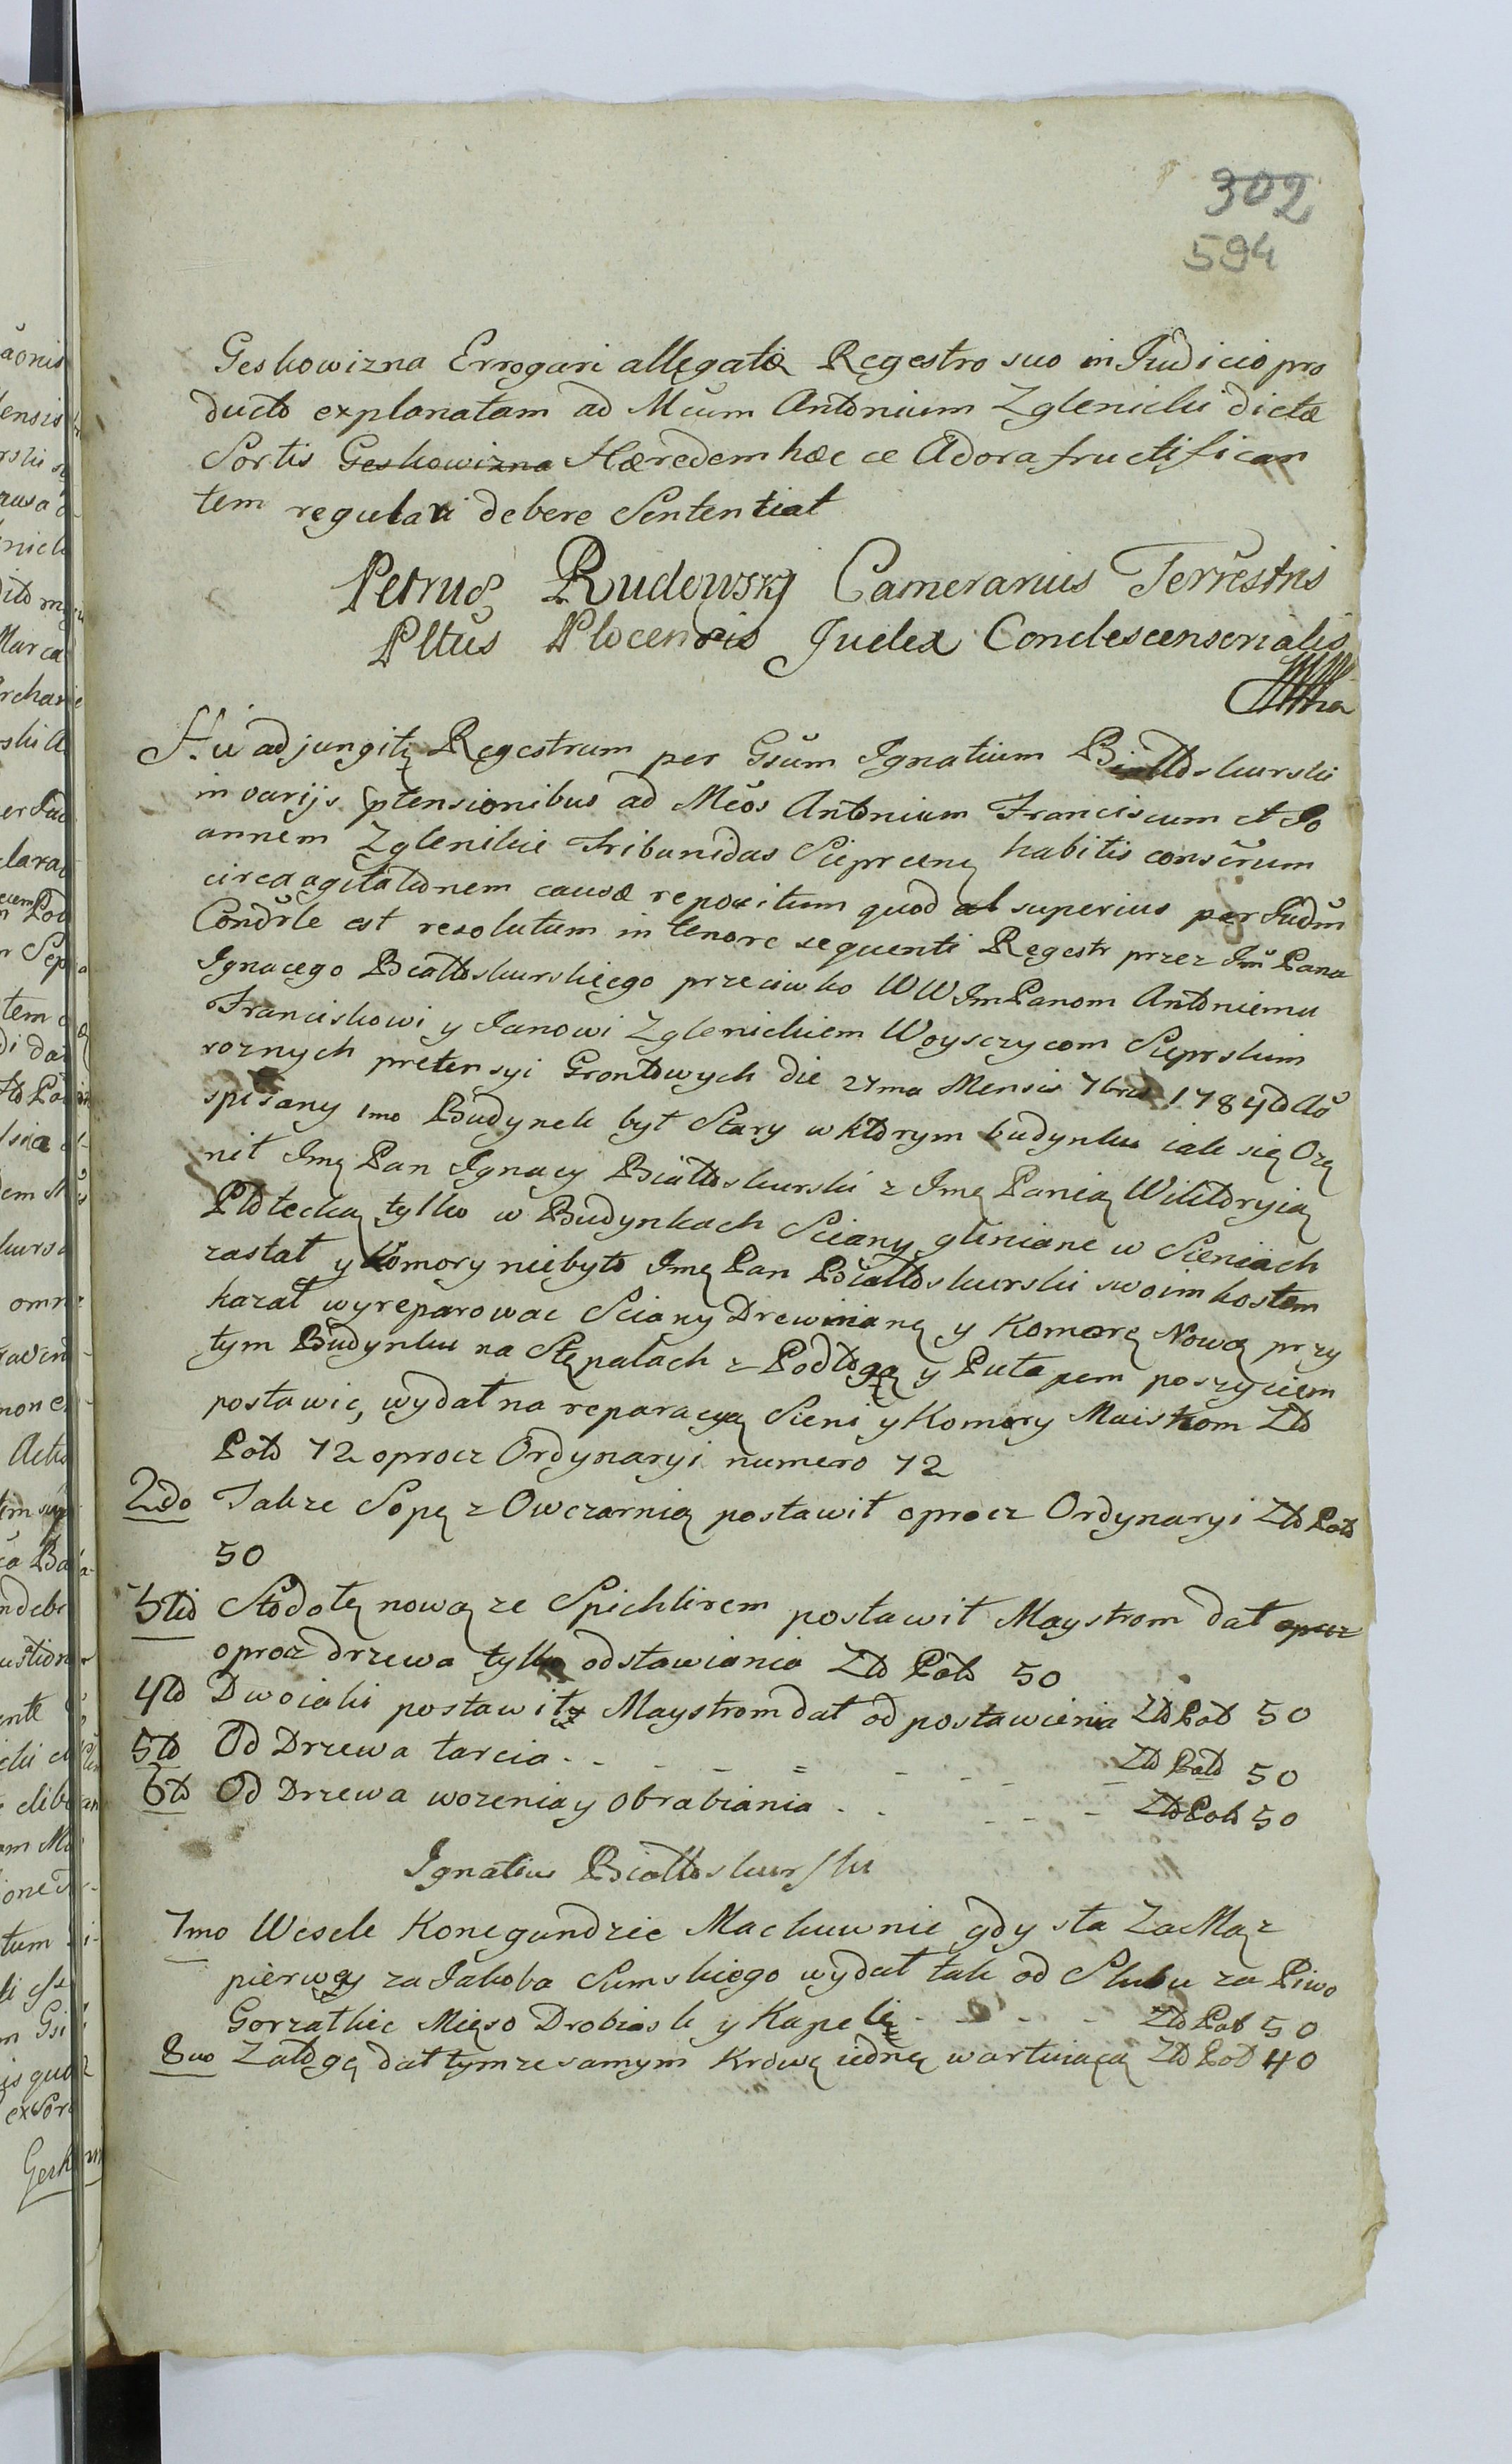 302
594
Geskowizna Errogari allegatæ Regestro suo in Judicio pro
ducto explanatam ad Mcum Antonium Zglenicki dictæ
Sortis Geskowizna Hæredem hæc ce Adora fructifican
tem regulari debere Sententiat
Petrus Rudowskj Camerarius Terrestris
Pltus Plocensis Judex Condescensorialis
mpa
Hic adjungitr Regestrum per Gsum Ignatium Białłoskurski
in varijs ptensionibus ad Mcos Antonium Franciscum et Jo
annem Zglenickie Tribunidas Sieprcen habitis conscrum
circa agitationem causæ repositum quod superius per Judm
Condrle est resolutum in tenore sequenti Regestr przez Jm Pana
Ignacego Białłoskurskiego przeciwko WW JmPanom Antoniemu
Franciskowi y Janowi Zglenickiem Woysczycom Sieprskim
roznych pretensyi Grontowych die 27ma Mensis 7bris 1784to Ao
spisany 1mo Budynek był Stary w ktorym budynku iak się Oże
nił Jmę Pan Ignacy Białłoskurski z Jmę Panią Wiktoryią
Płotecką tylko w Budynkach Sciany gliniane w Sieniach
zastał y Komory niebyło Jmę Pan Białłoskurski swoim kostem
kazał wyreparowac Sciany Drewnianę y Komorę Nową przy
tym Budynku na Stępalach z Podłogą y Pułapem poszyciem
postawic, wydał na reparacyą Sieni y Komory Maistrom Zło
Pol 72 oprocz Ordynaryi numero 72
2do Takze Sopę z Owczarnią postawił oprocz Ordynaryi Zło Pol
50
3tio Stodołę nową ze Spichlirem postawił Maystrom dał oprcz
oprocz drzewa tylko odstawiania Zło Pol 50
4to Dwoiaki postawił z Maystrom dał od postawienia Zło Pol 50
5to Od Drzewa tarcia - - - - - - Zło Pol 50
6to Od Drzewa wozenia y obrabiania - - - - Zło Pol 50
Ignatius Białłoskurski
7mo Wesele Konegundzie Machuwnie gdy sła ZaMąz
pierwey za Jakoba Sumskiego wydał tak od Slubu za Piwo
Gorzałkie Mięso Drobiask y Kapelię - - - - Zło Pol 50
8vo Załogę dał tymze samym Krowę iednę wartuiącą Zło Pol 40